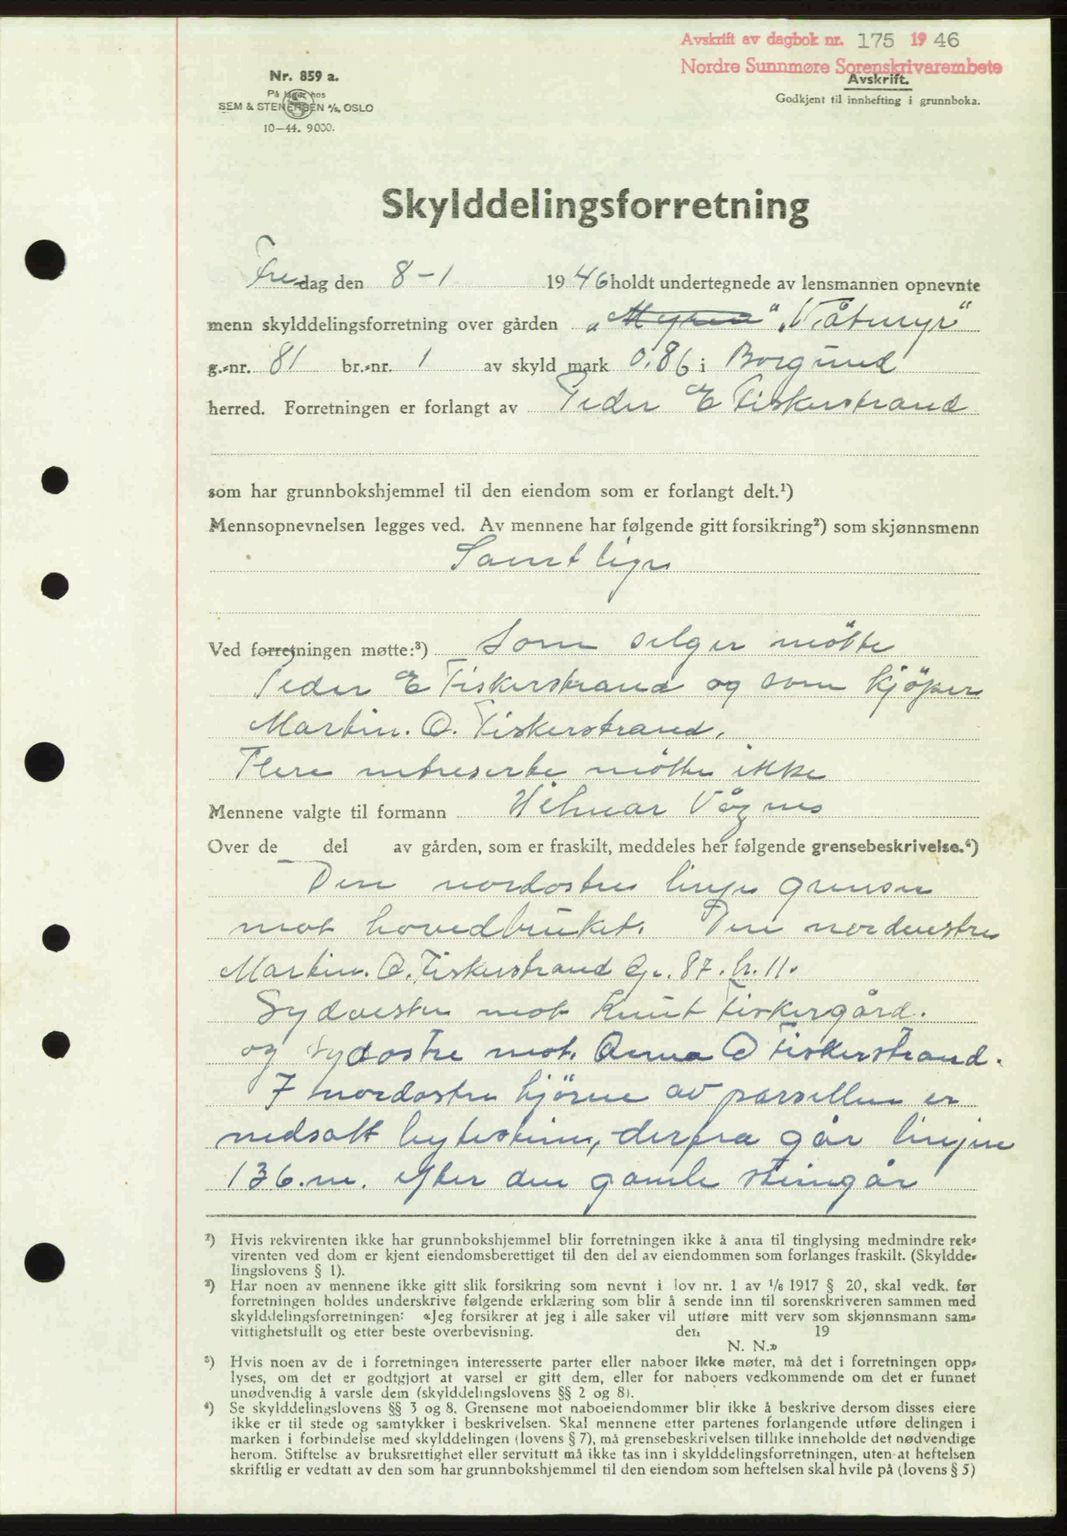 Avskrift av dagbok nr. 175 1946
Nordre Sunnmøre Sorenskrivarembete
Nr. 859 a.
På lager hos
SEM & STENERSEN A/S, OSLO
10—44. 9000.
Avskrift.
Godkjent til innhefting i grunnboka.
Skylddelingsforretning
Fredag den 8-1 1946 holdt undertegnede av lensmannen opnevnte
menn skylddelingsforretning over gården „Myren" „Våtmyr"
g.-nr. 81 br.-nr. 1 av skyld mark 0.86 i Borgund
herred. Forretningen er forlangt av Peder E Fiskerstrand
som har grunnbokshjemmel til den eiendom som er forlangt delt.¹)
Mennsopnevnelsen legges ved. Av mennene har følgende gitt forsikring²) som skjønnsmenn
Samtlige
Ved forretningen møtte:³) Som selger møtte
Peder E Fiskerstrand og som kjöper
Martin. O. Fiskerstrand.
Flere intreserte møtte ikke
Mennene valgte til formann Hilmar Vågnes
Over de del av gården, som er fraskilt, meddeles her følgende grensebeskrivelse.⁴)
Den nordostre linje grenser
mot hovedbruket. Den nordvestre
Martin. O. Fiskerstrand Gr. 87. br. 11.
Sydvestre mot Knut Fiskergård.
og sydostre mot. Anna O Fiskerstrand.
I nordostre hjörne av parsellen er
nedsatt bytestein, derfra går linjen
136.m. efter den gamle steingår
¹) Hvis rekvirenten ikke har grunnbokshjemmel blir forretningen ikke å anta til tinglysing medmindre rek-
virenten ved dom er kjent eiendomsberettiget til den del av eiendommen som forlanges fraskilt. (Skyldde-
lingslovens § 1).
²) Har noen av mennene ikke gitt slik forsikring som nevnt i lov nr. 1 av 1/6 1917 § 20, skal vedk. før
forretningen holdes underskrive følgende erklæring som blir å sende inn til sorenskriveren sammen med
skylddelingsforretningen: «Jeg forsikrer at jeg i alle saker vil utføre mitt verv som skjønnsmann sam-
vittighetsfullt og etter beste overbevisning. den 19
N. N.»
³) Hvis noen av de i forretningen interesserte parter eller naboer ikke møter, må det i forretningen opp-
lyses, om det er godtgjort at varsel er gitt dem, eller for naboers vedkommende om det er funnet
unødvendig å varsle dem (skylddelingslovens §§ 2 og 8).
⁴) Se skylddelingslovens §§ 3 og 8. Grensene mot naboeiendommer blir ikke å beskrive dersom disses eiere
ikke er til stede og samtykker i beskrivelsen. Skal mennene etter partenes forlangende utføre delingen i
marken i forbindelse med skylddelingen (lovens § 7), må grensebeskrivelsen tillike inneholde det nødvendige
herom. Stiftelse av bruksrettighet eller servitutt må ikke tas inn i skylddelingsforretningen, uten at heftelsen
skriftlig er vedtatt av den som har grunnbokshjemmel til den eiendom som heftelsen skal hvile på (lovens § 5)